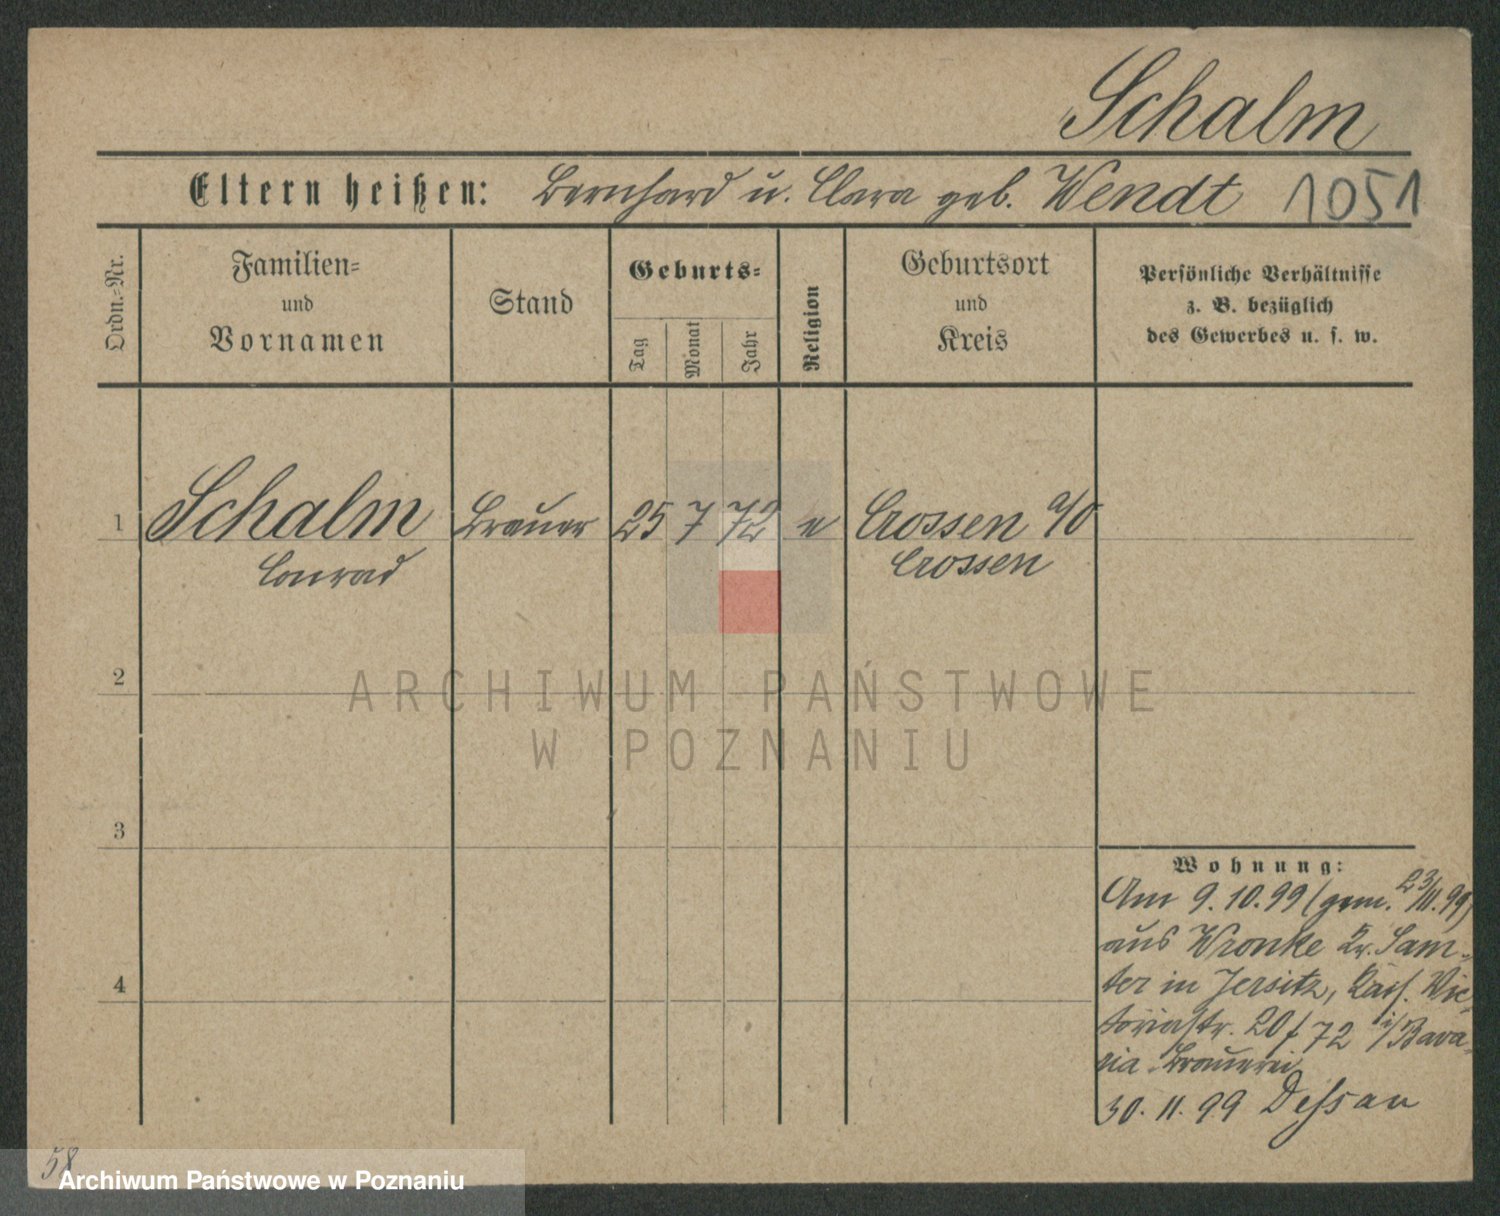 Schalm
Eltern heißen: Bernhard u. Clara geb. Wendt 1051
Ordn.-Nr.
Familien-
und
Vornamen
Stand
Geburts-
Tag
Monat
Jahr
Religion
Geburtsort
und
Kreis
Persönliche Verhältnisse
z. B. bezüglich
des Gewerbes u. s. w.
1 Schalm Brauer 25 7 72 e Crossen a/O
Conrad Crossen
2
ARCHIWUM PAŃSTWOWE
W POZNANIU
3
Wohnung:
Am 9.10.99 (gem. 23/11.99)
aus Wronke Kr. Sam-
ter in Jersitz, Kais. Vic-
toriastr. 20 f 72 i/Bava-
ria Brauerei
4
30.11.99 Dessau
58
Archiwum Państwowe w Poznaniu